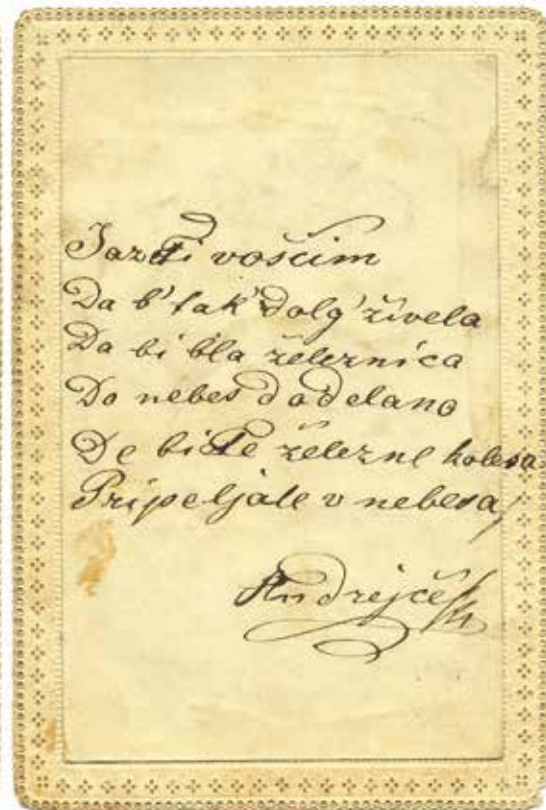 Jaz Ti voščim
Da b' tak' dolg' živela
Da bi bla železnica
Do nebes dodelano
De bi Te železne kolesa
Pripeljale v nebesa/
Andrejček